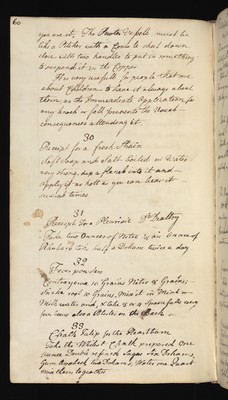 60
you use it; The Pewter Vessell must be
like a Pitcher with a Cover to shut down
close with two handles to put in something
to suspend it in the Copper
Tis very usefull for people that are
about Children to have it always about
them as the Immediate Application for
any knock or fall prevents the usual
consequences attending it.
30
Receipt for a fresh Strain
Soft soap and Salt boiled in Water
very strong, dip a flanel into it and
apply it as hott as you can bear it
several times
31
Receipt for a Pleurisie Dr Fradley
Take two Ounces of Nitre & an Ounce of
Rhubarb half a Dram twice a day
32
Fever powders
Contrayerva 10 Grains Nitre 8 Grains,
Snake root 10 Grains, Mix it in
Milk water and, take 3 or 4 Spoonfulls every
four hours also Blister on the Back
33
Chalk Julep for the Heartburn
Take the Whitest Chalk prepared One
ounce Double refined Sugar Six Drams,
Gum Arabick two Drams, Water one Quart
mix them together